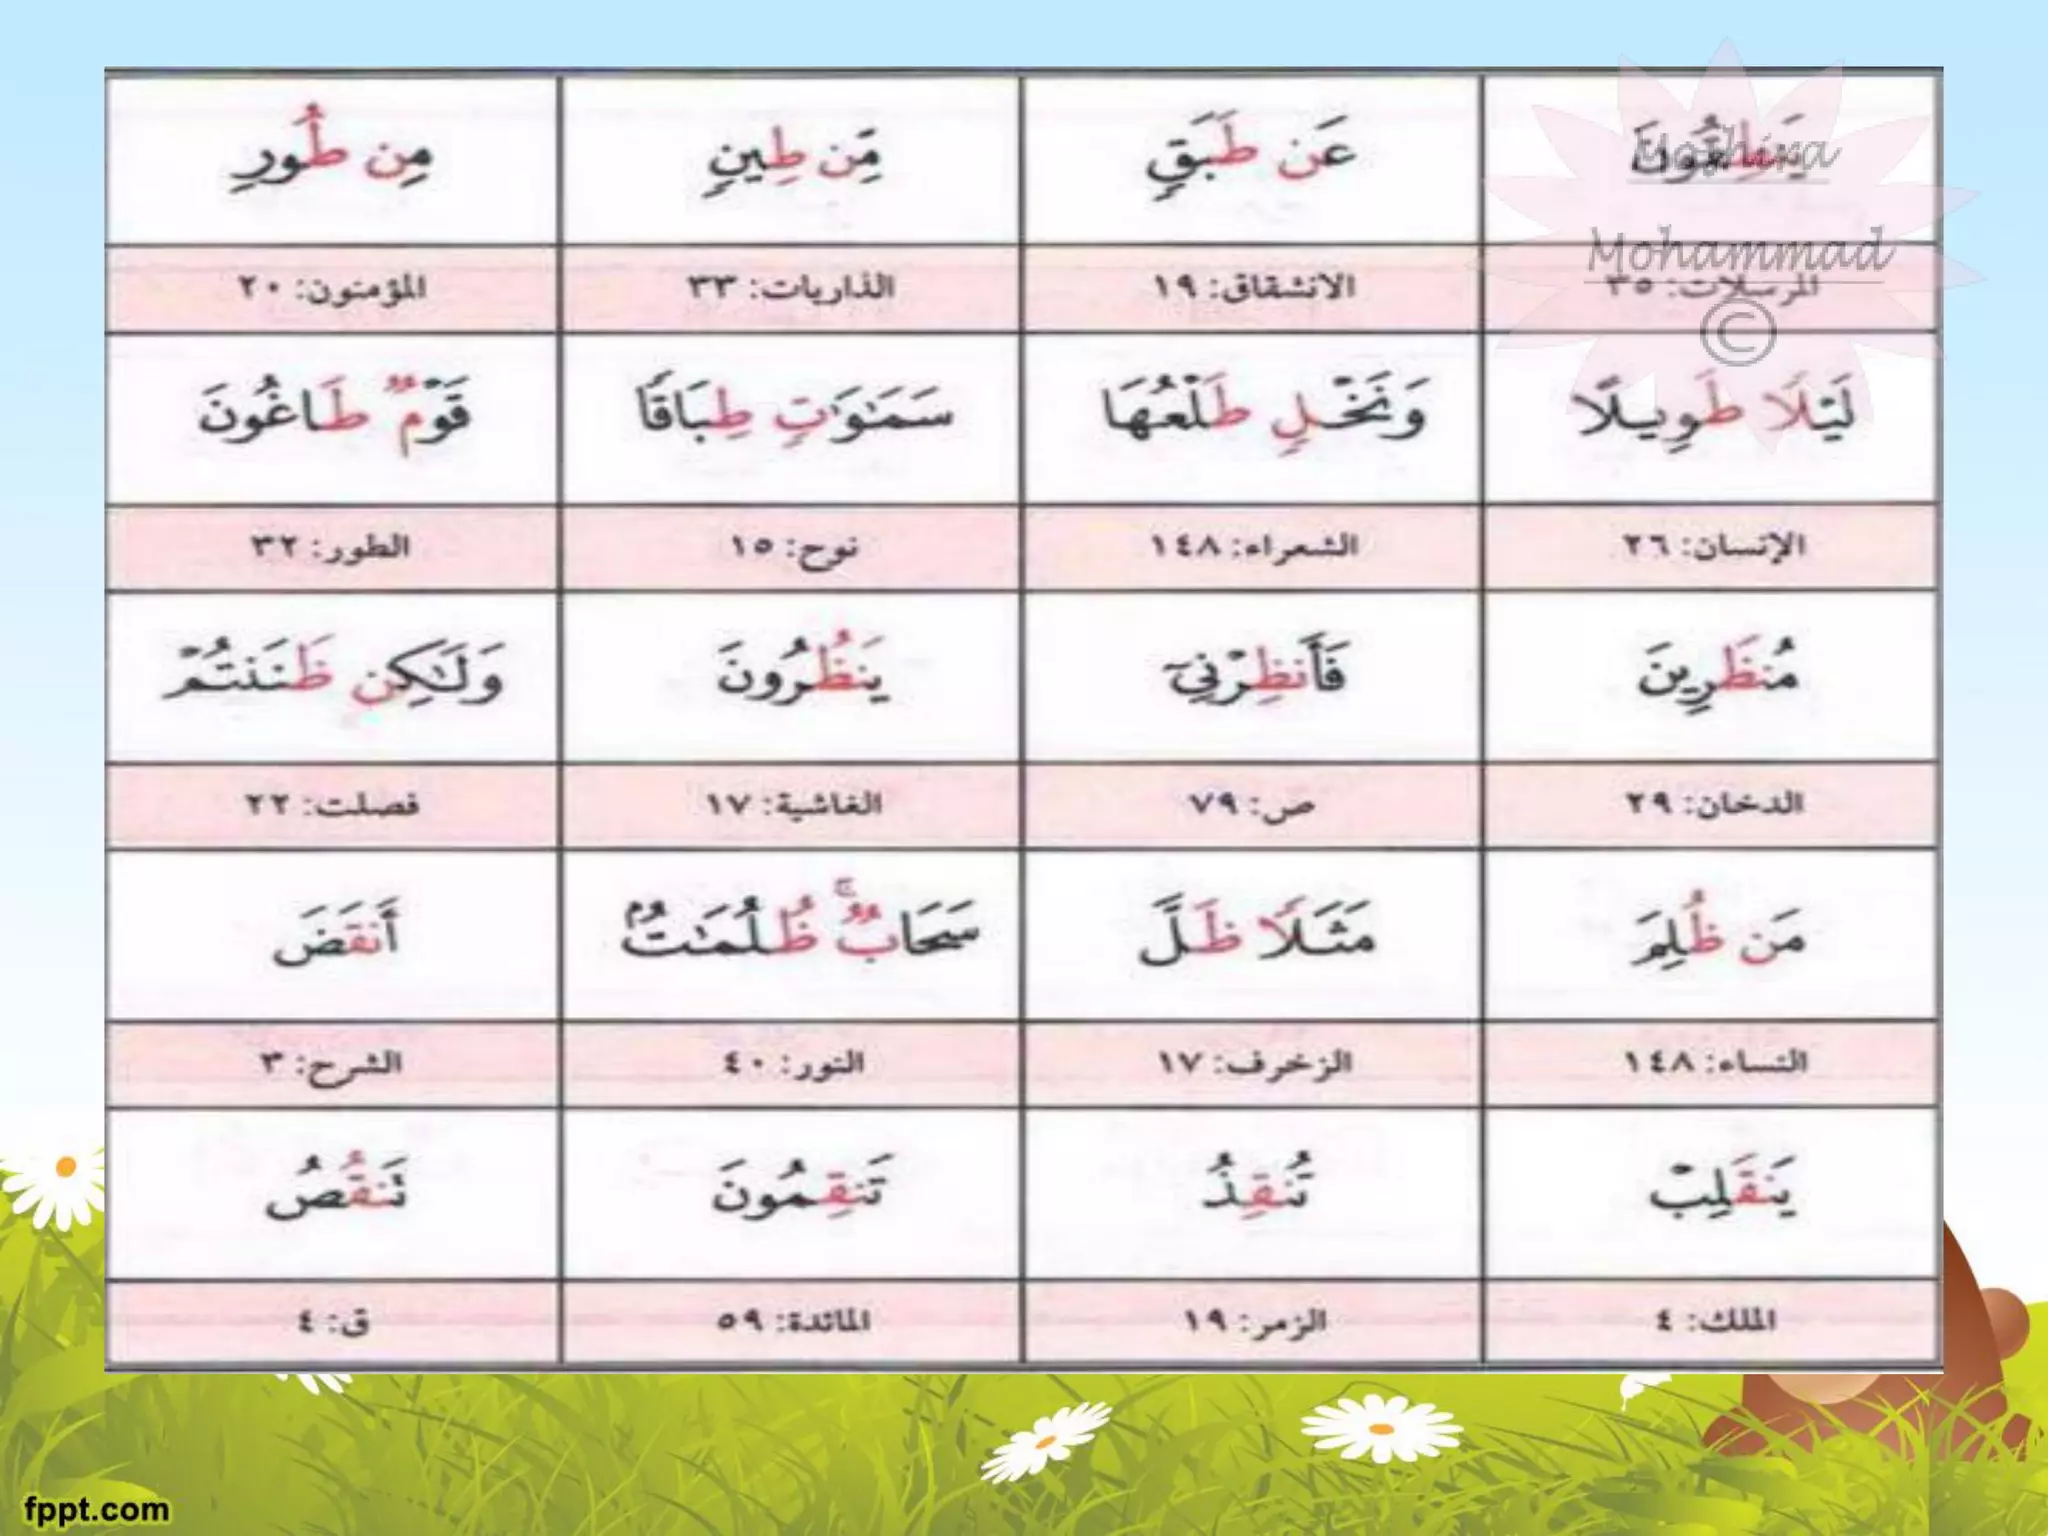 يَنطِقُونَ عَن طَبَقٍ مِّن طِينٍ مِن طُورِ
المرسلات: ٣٥ الانشقاق: ١٩ الذاريات: ٣٣ المؤمنون: ٢٠
لَيْلًا طَوِيلًا وَنَخْلٍ طَلْعُهَا سَمَٰوَٰتٍ طِبَاقًا قَوْمٌ طَاغُونَ
الإنسان: ٢٦ الشعراء: ١٤٨ نوح: ١٥ الطور: ٣٢
مُنظَرِينَ فَأَنظِرْنِيٓ يَنظُرُونَ وَلَٰكِن ظَنَنتُمْ
الدخان: ٢٩ ص: ٧٩ الغاشية: ١٧ فصلت: ٢٢
مَن ظُلِمَ مَثَلًا ظَلَّ سَحَابٌ ۚ ظُلُمَٰتٌۢ أَنقَضَ
النساء: ١٤٨ الزخرف: ١٧ النور: ٤٠ الشرح: ٣
يَنقَلِبْ تُنقِذُ تَنقِمُونَ تَنقُصُ
الملك: ٤ الزمر: ١٩ المائدة: ٥٩ ق: ٤
Mohammad
©
fppt.com